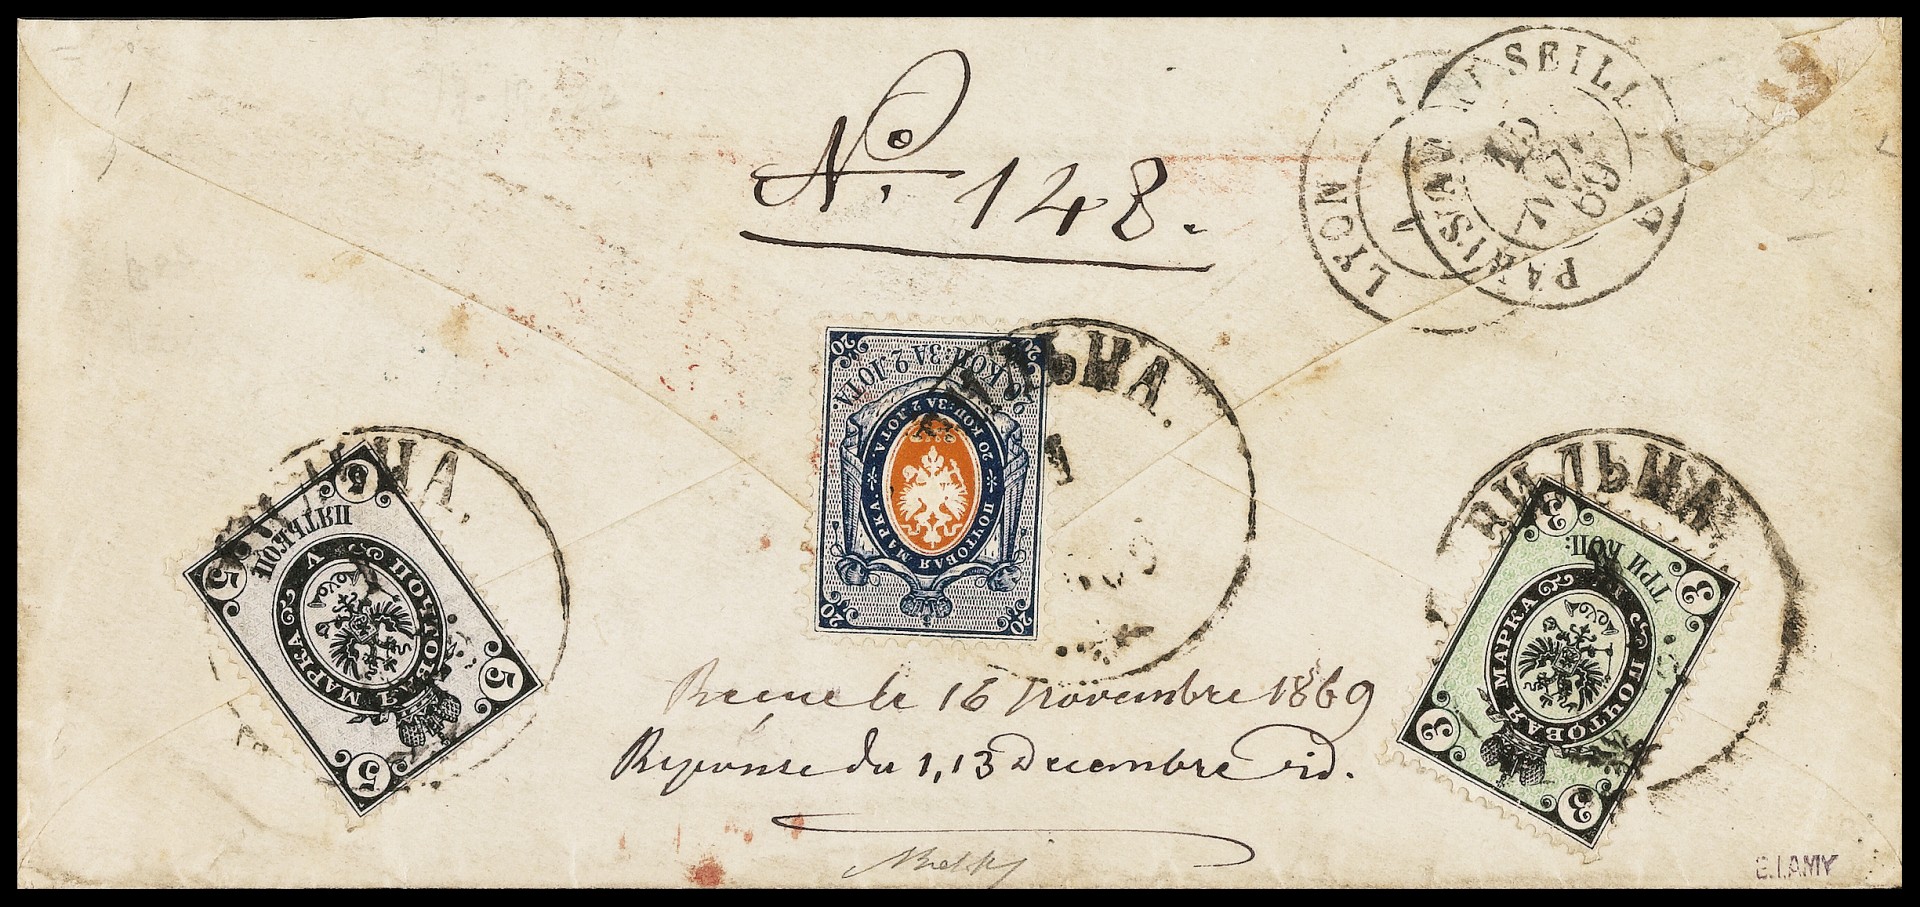 Nº 148.
LYON 1
PARIS A MARSEILLE
15
NOV.
69
ВИЛЬНА.
20 КОП: ЗА 2 ЛОТА.
ПОЧТОВАЯ МАРКА * 20 КОП: ЗА 2 ЛОТА *
20 20 20 20
ВИЛЬНА.
ПЯТЬ КОП:
ПОЧТОВАЯ МАРКА V
5 5 5 5
ВИЛЬНА.
ТРИ КОП:
ПОЧТОВАЯ МАРКА
3 3 3 3
Recue le 16 Novembre 1869
Réponse du 1,13 Decembre id.
E.I.AMY